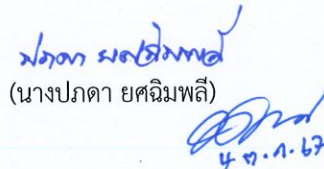 ปภดา ยศฉิมพลี
(นางปภดา ยศฉิมพลี)
4 ต.ค. 67